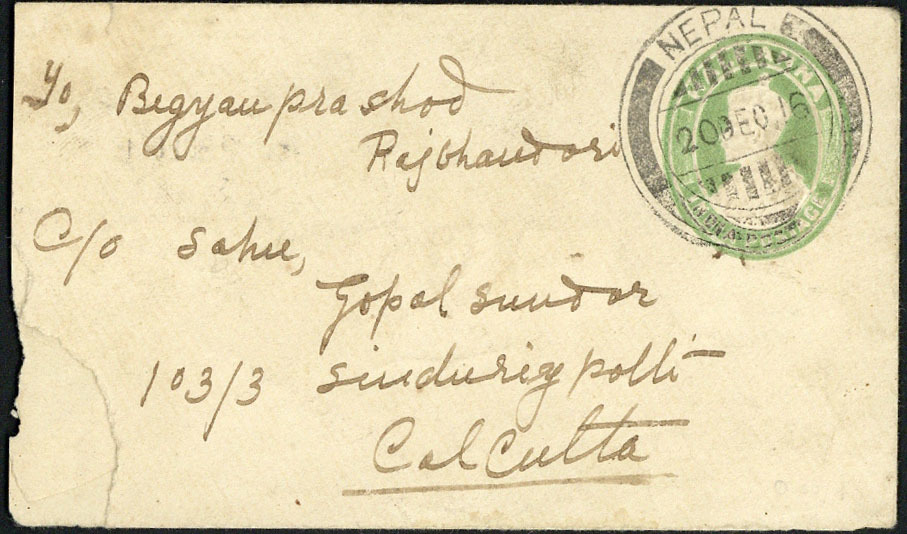 NEPAL
20 DEC 16
INDIA POSTAGE
To, Begyan prashod
Rajbhandori
C/o Sahu,
Gopal Sundar
103/3 Sinduriy potti
Calcutta